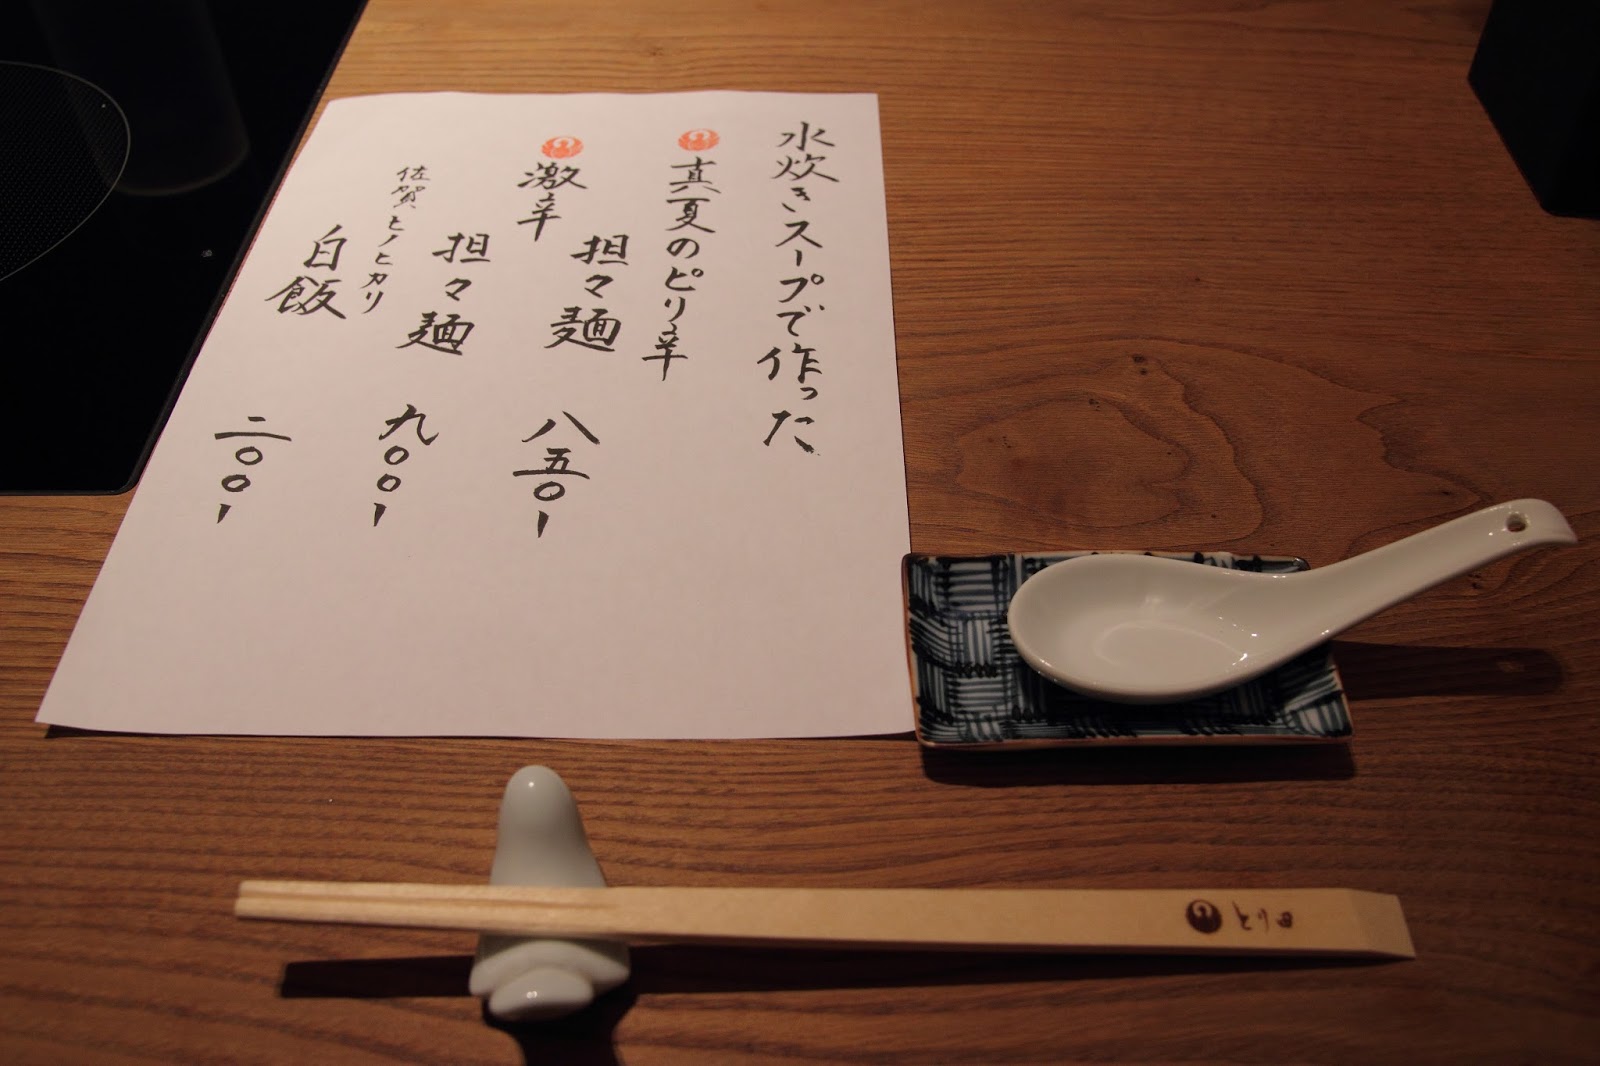 水炊きスープで作った
真夏のピリ辛
担々麺 八五〇
激辛
担々麺 九〇〇
佐賀ヒノヒカリ
白飯 二〇〇
とり田